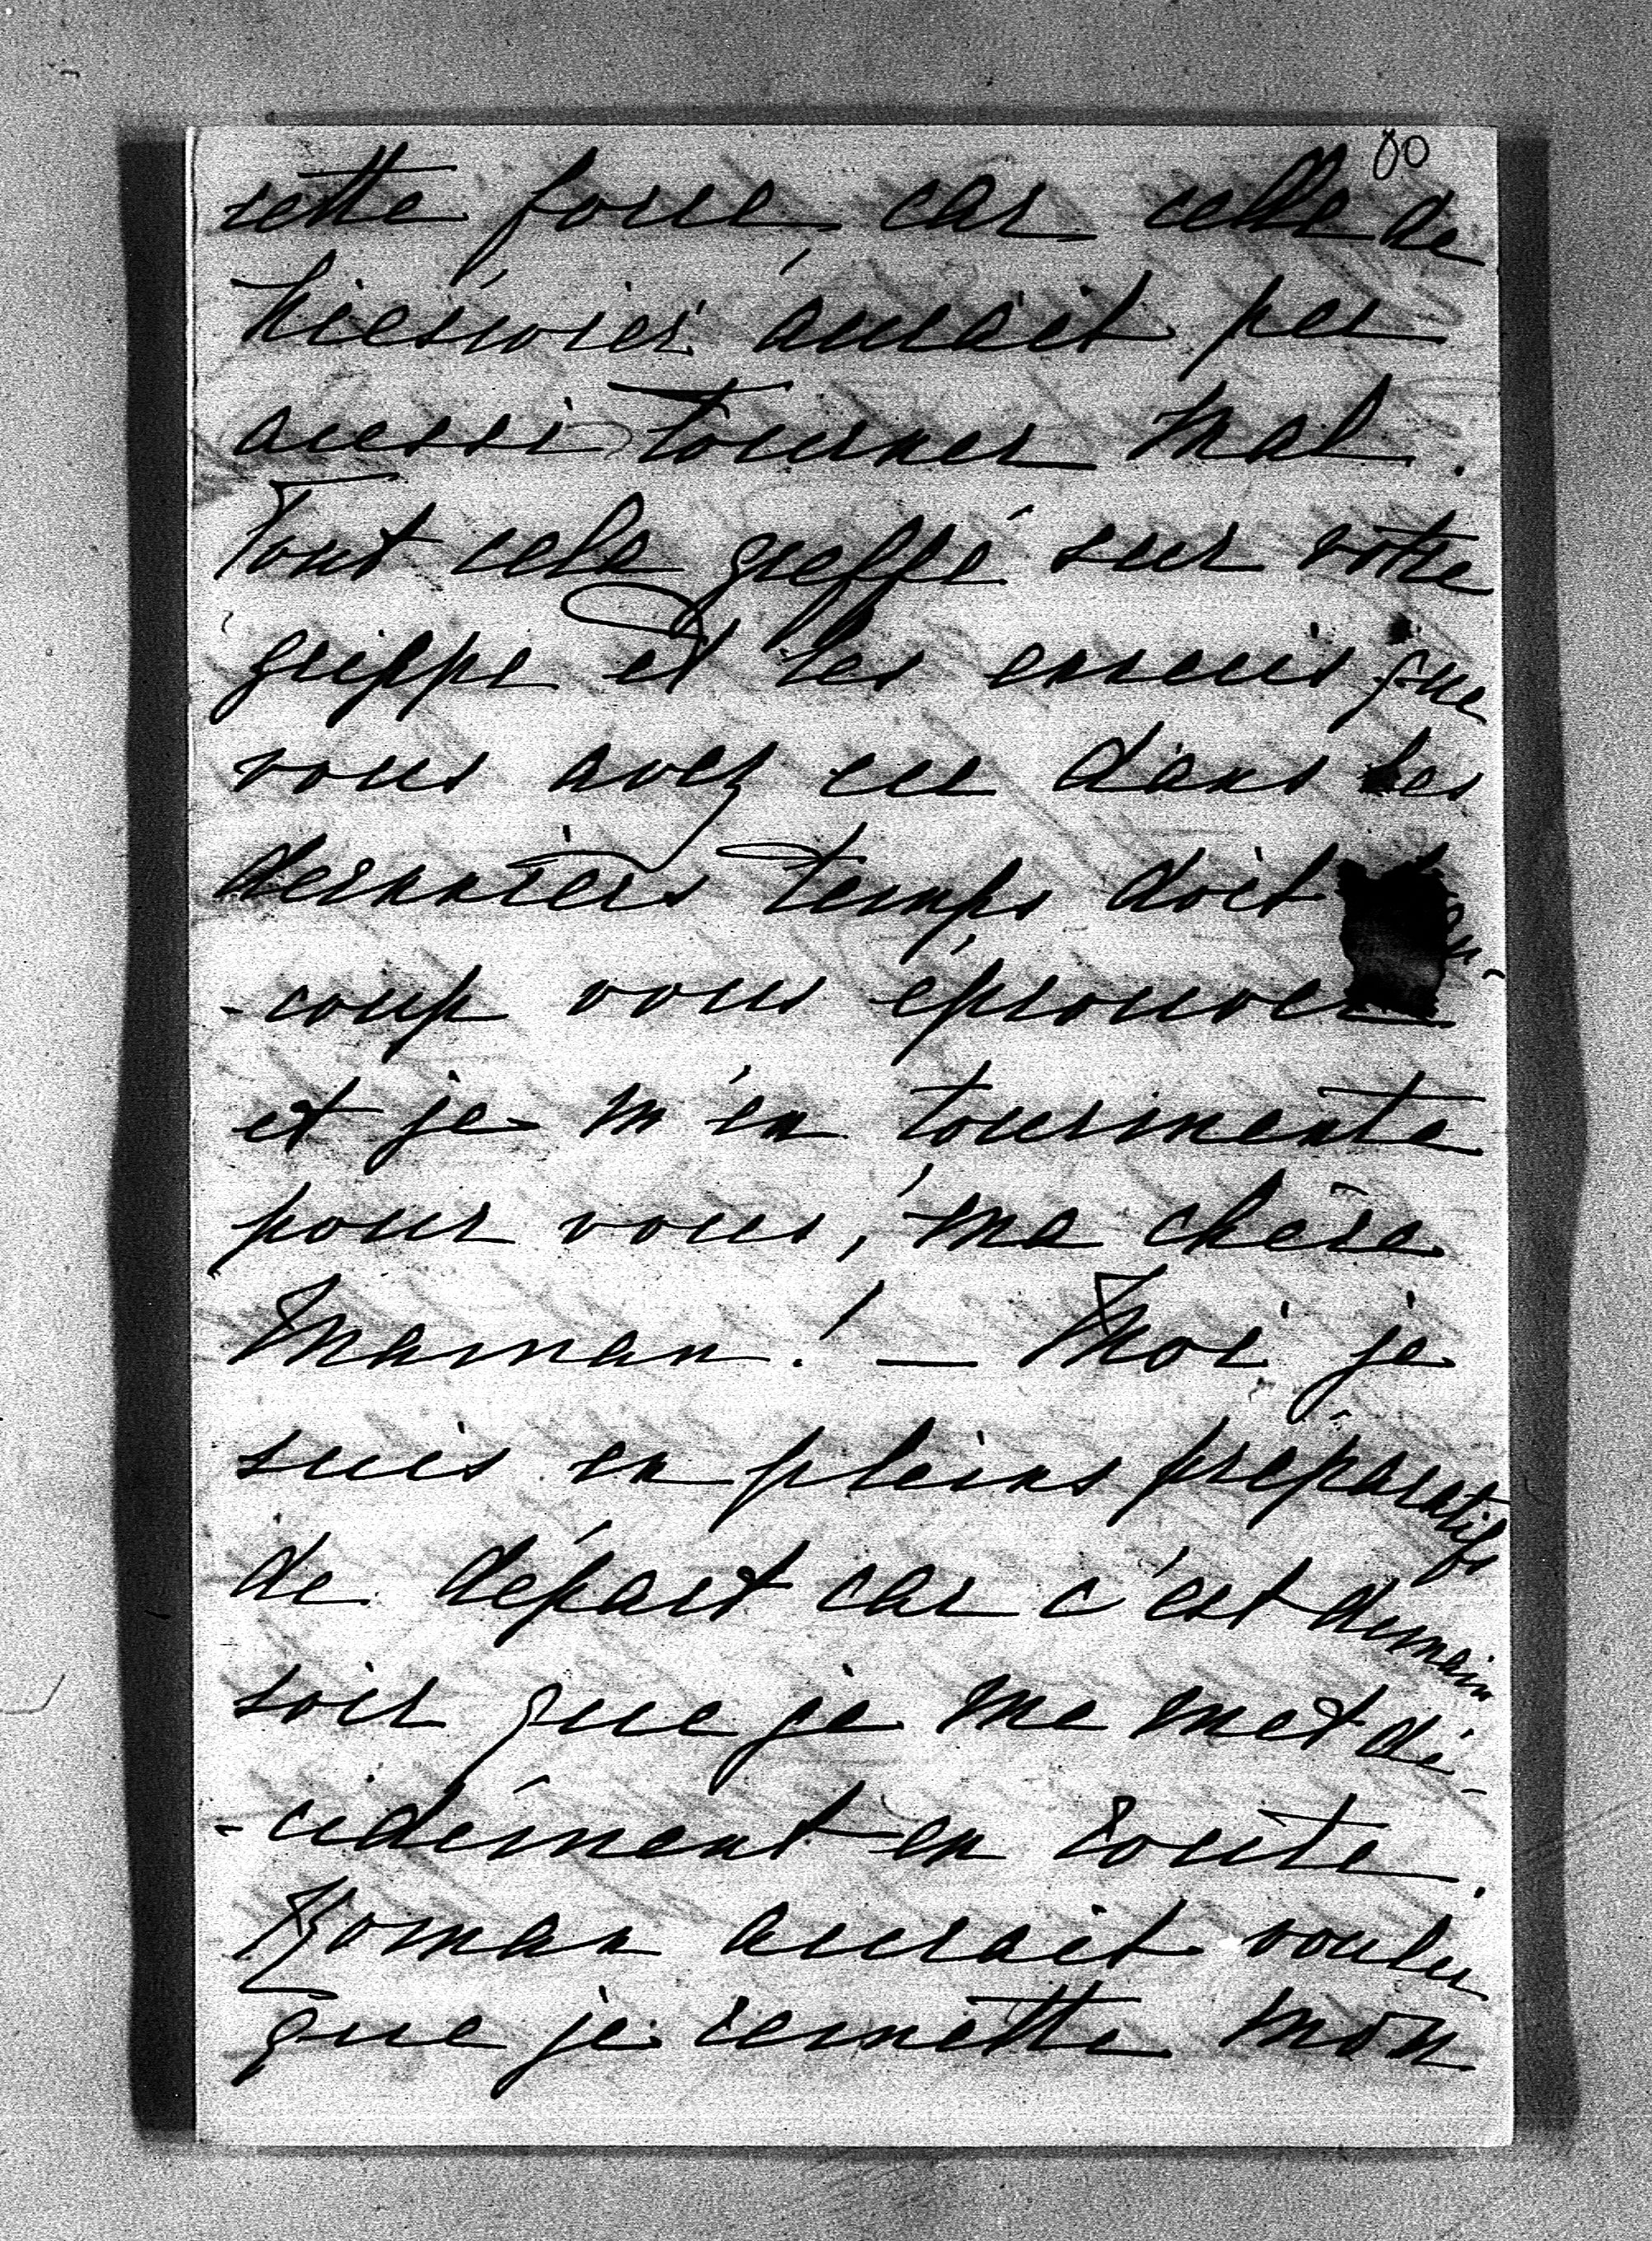 80
cette force car celle de
aurait pu
aussi tourner mal.
Tout cela greffé sur votre
grippe et les ennuis que
vous avez eu dans les
derniers temps doit
-coup vous éprouver
et je m'en tourmente
pour vous, ma chère
Maman! — Moi je
suis en pleins préparatifs
de départ car c'est demain
soir que je me met dé-
-cidément en route.
Roman aurait voulu
que je remette mon